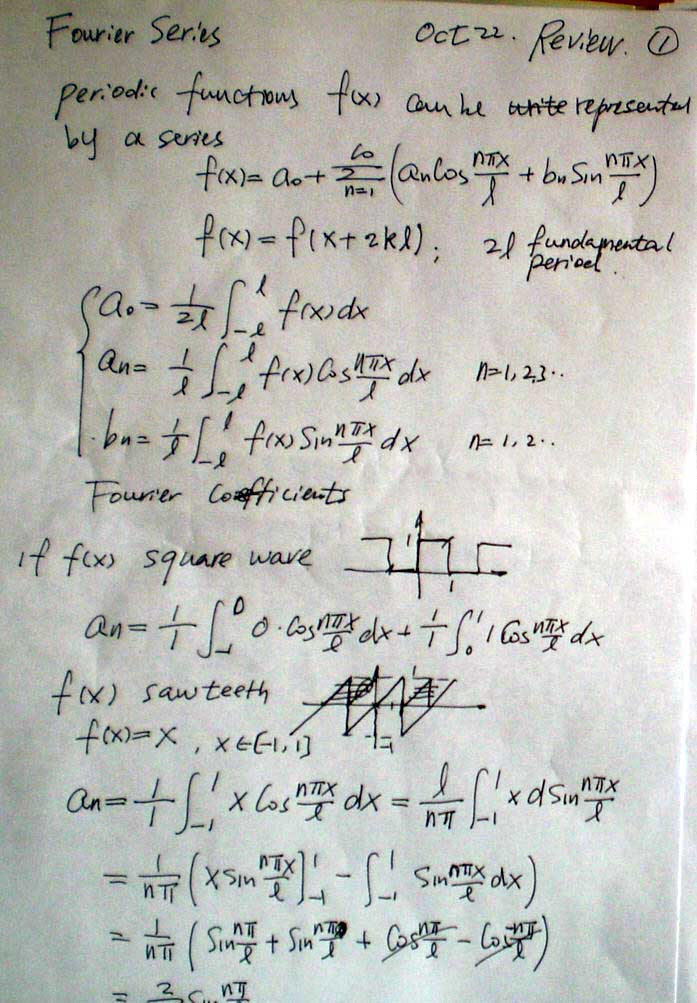 Fourier Series Oct 22. Review. ①
periodic functions f(x) can be represented
by a series
f(x) = a₀ + ∑_{n=1}^{∞} (aₙ Cos nπx/l + bₙ Sin nπx/l)
f(x) = f(x + 2kl); 2l fundamental
period.
a₀ = 1/2l ∫_{-l}^{l} f(x) dx
aₙ = 1/l ∫_{-l}^{l} f(x) Cos nπx/l dx n=1,2,3..
bₙ = 1/l ∫_{-l}^{l} f(x) Sin nπx/l dx n=1,2..
Fourier Coefficients
if f(x) square wave 1 1
aₙ = 1/1 ∫_{-1}^{0} 0·Cos nπx/l dx + 1/1 ∫_{0}^{1} 1 Cos nπx/l dx
f(x) sawteeth 1
f(x) = x, x∈[-1,1] -1
aₙ = 1/1 ∫_{-1}^{1} x Cos nπx/l dx = l/nπ ∫_{-1}^{1} x d Sin nπx/l
= 1/nπ (x sin nπx/l]_{-1}^{1} - ∫_{-1}^{1} Sin nπx/l dx)
= 1/nπ (Sin nπ/l + Sin nπ/l + Cos nπ/l - Cos -nπ/l)
= 2 Sin nπ